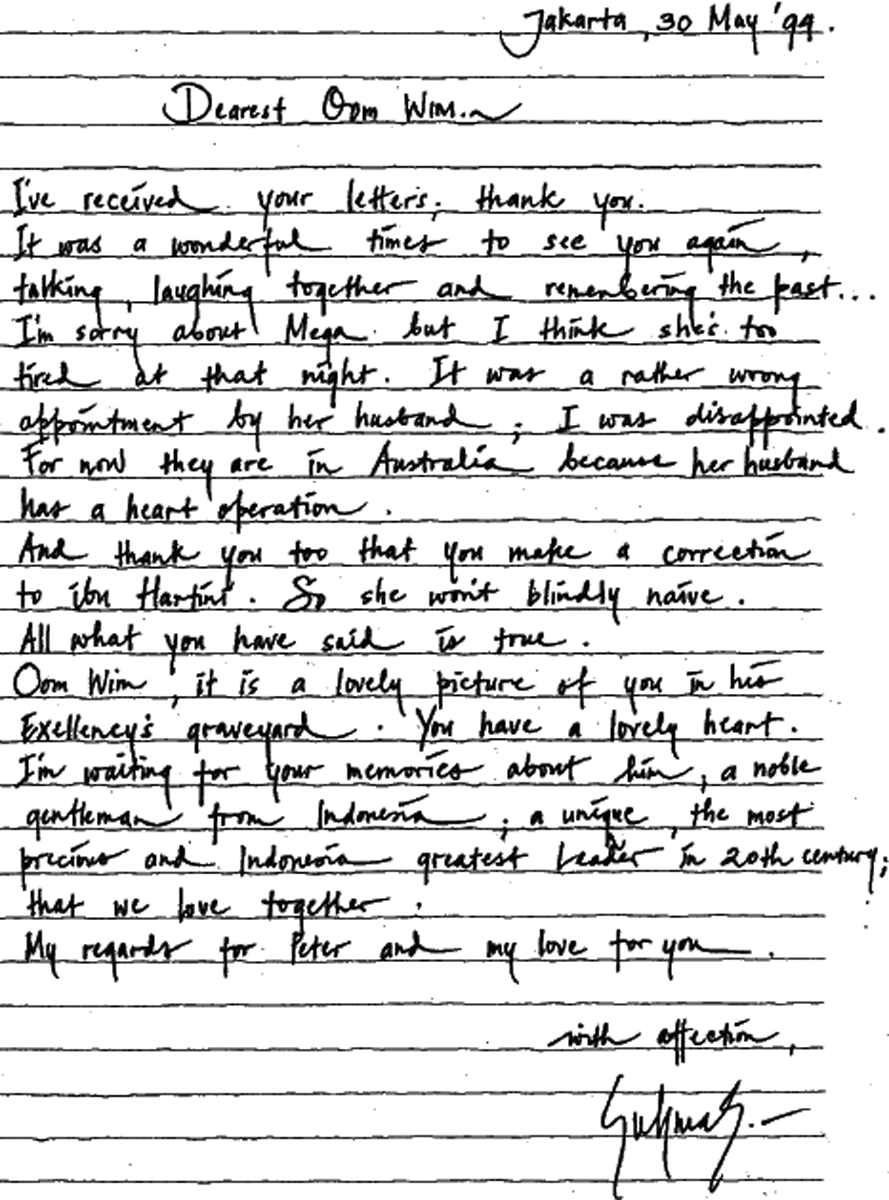 Jakarta, 30 May '94.
Dearest Oom Wim.
I've received your letters; thank you.
It was a wonderful times to see you again,
talking, laughing together and remembering the past...
I'm sorry about Mega but I think she's too
tired at that night. It was a rather wrong
appointment by her husband; I was disappointed.
For now they are in Australia because her husband
has a heart operation.
And thank you too that you make a correction
to ibu Hartini. So she won't blindly naive.
All what you have said is true.
Oom Wim, it is a lovely picture of you in his
Exellency's graveyard. You have a lovely heart.
I'm waiting for your memories about him, a noble
gentleman from Indonesia; a unique, the most
precious and Indonesia greatest Leader in 20th century;
that we love together.
My regards for Peter and my love for you.
with affection,